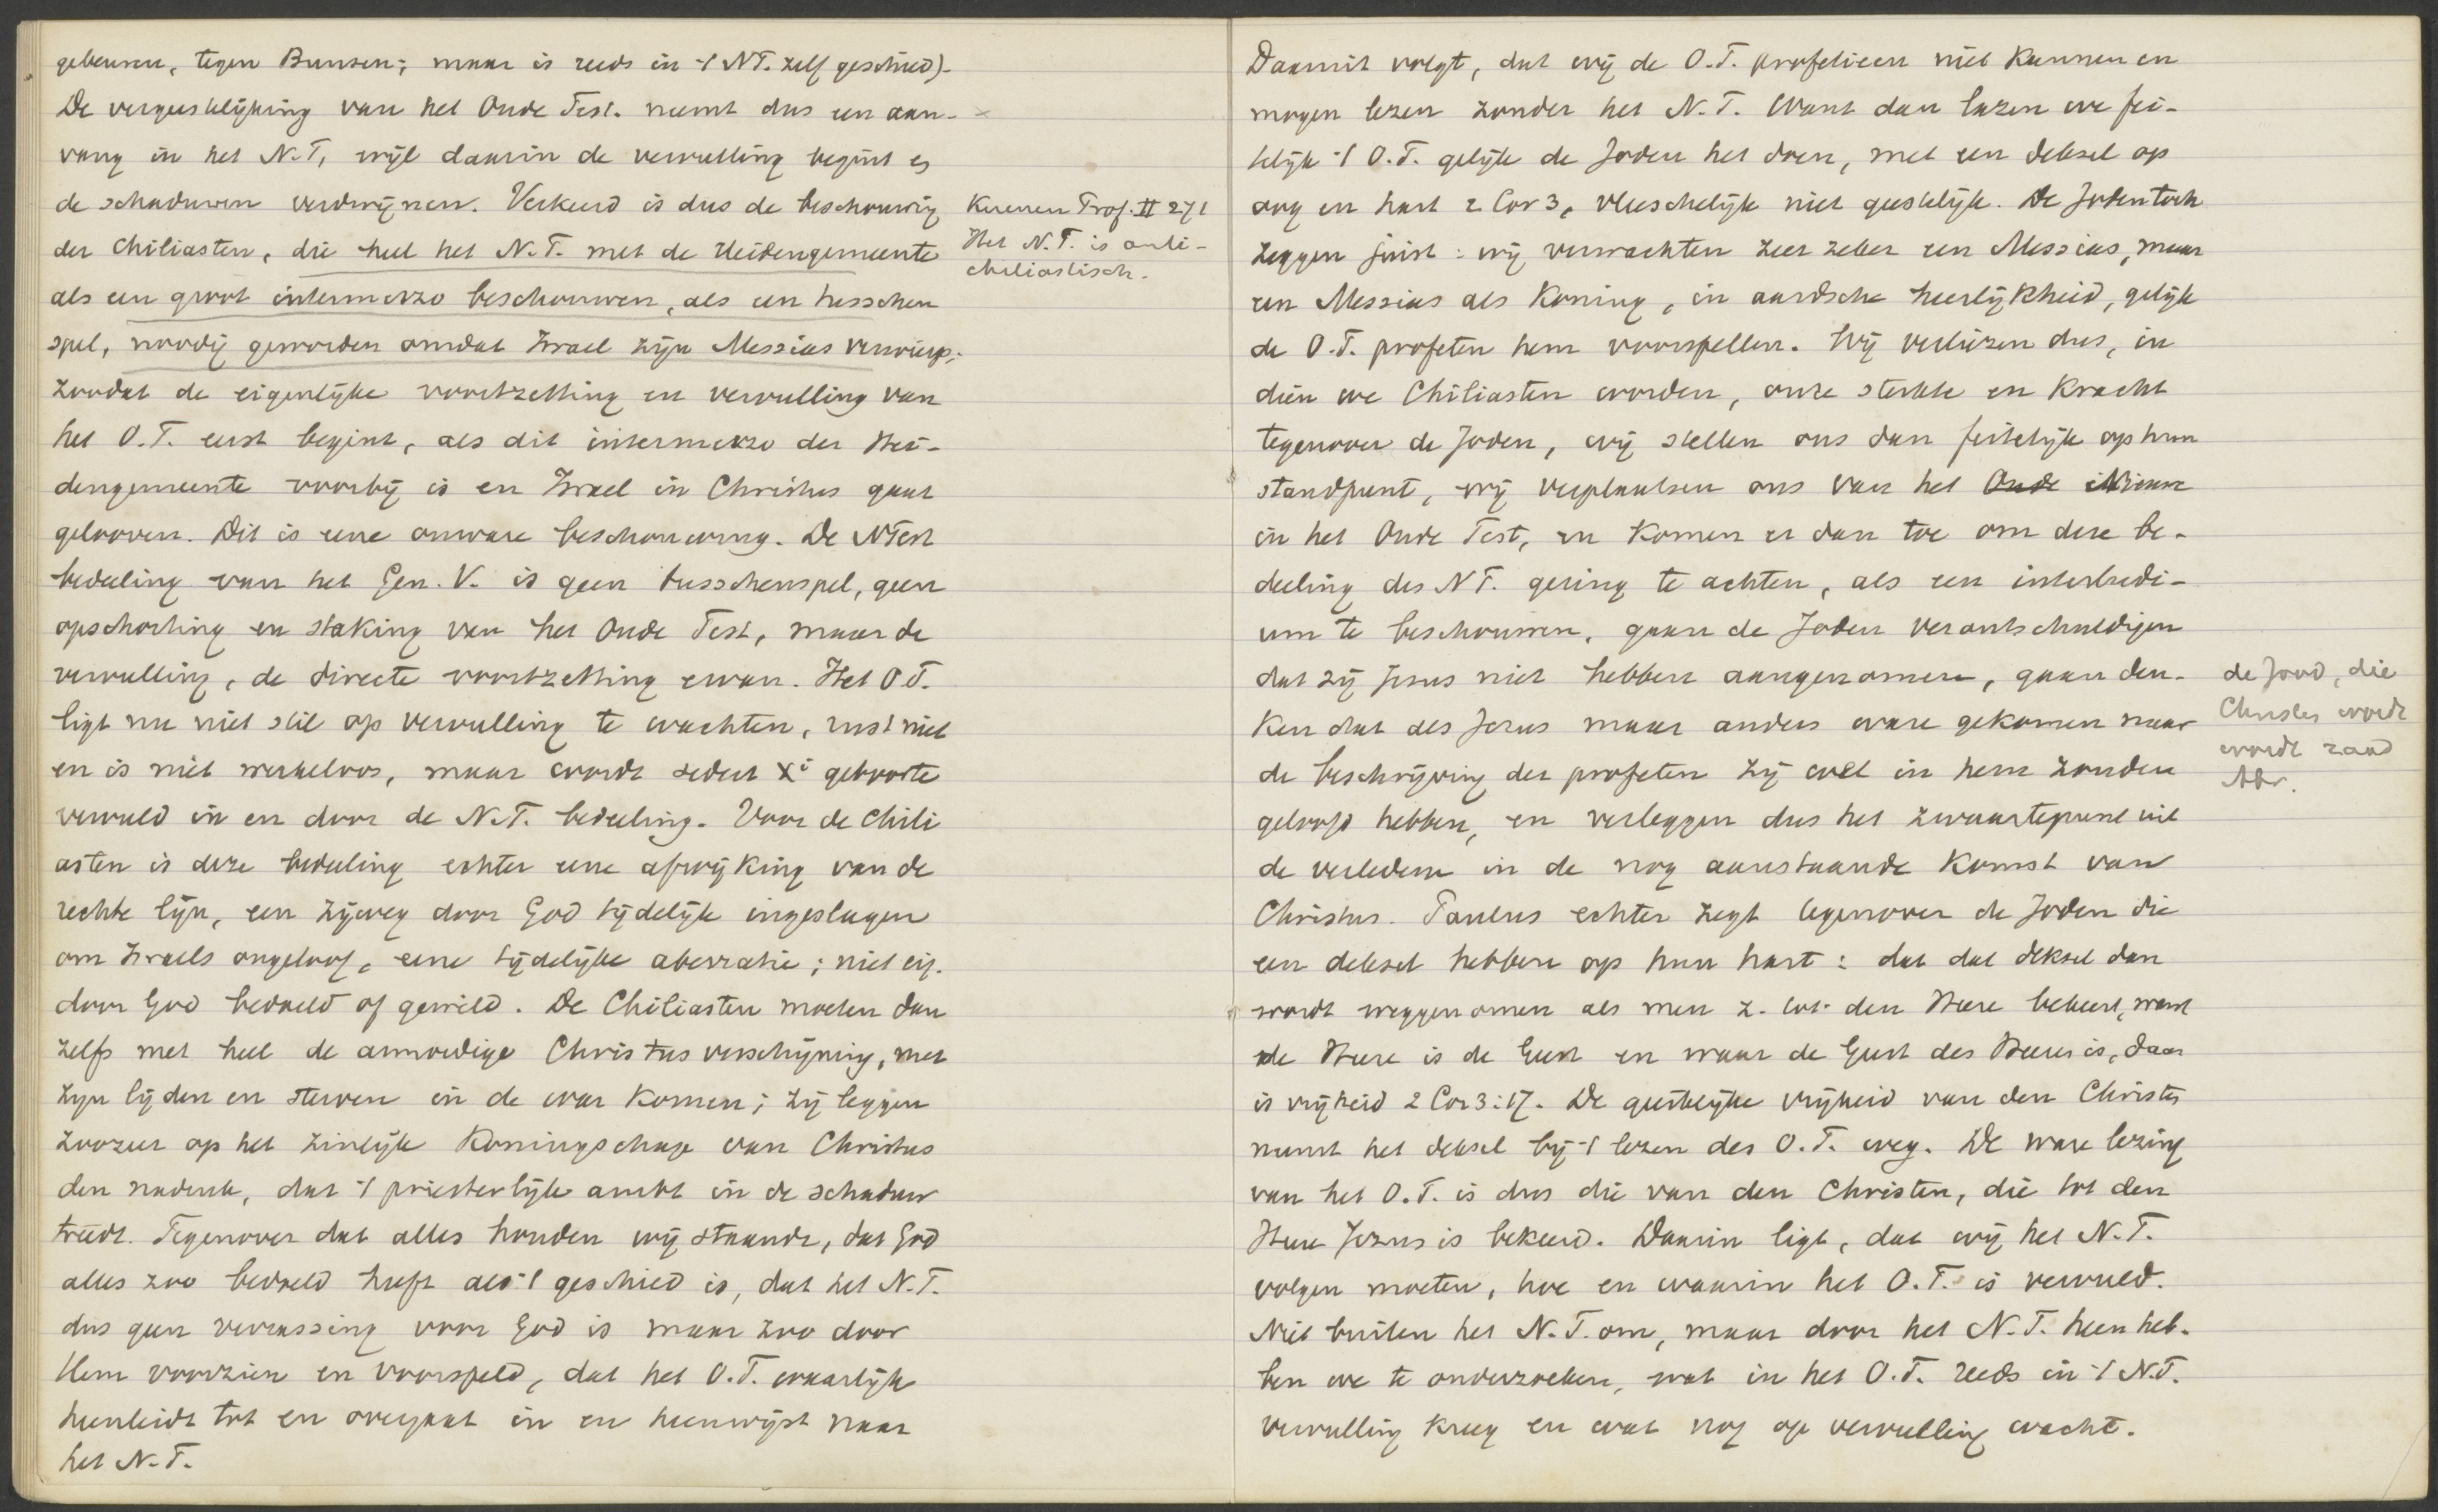 gebeuren, tegen Bunsen; maar is reeds in 't NT. zelf geschied).
De vergeestelijking van het Oude Test. neemt dus een aan-
vang in het N.T, wijl daarin de vervulling begint en
de schaduwen verdwijnen. Verkeerd is dus de beschouwing
der Chiliasten, die heel het N.T. met de Heidengemeente
als een groot intermezzo beschouwen, als een tusschen
spel, noodig geworden omdat Israel zijn Messias verwierp;
zoodat de eigenlijke voortzetting en vervulling van
het O.T. eerst begint, als dit intermezzo der Hei-
dengemeente voorbij is en Israel in Christus gaat
gelooven. Dit is eene onware beschouwing. De NTest
bedeeling van het Gen. V. is geen tusschenspel, geen
opschorting en staking van het Oude Test, maar de
vervulling, de directe voortzetting ervan. Het O.T.
ligt nu niet stil op vervulling te wachten, rust niet
en is niet werkeloos, maar wordt sedert Xi geboorte
vervuld in en door de N.T. bedeeling. Voor de Chili
asten is deze bedeeling echter eene afwijking van de
rechte lijn, een zijweg door God tijdelijk ingeslagen
om Israels ongeloof, eene tijdelijke aberratie; niet eig.
door God bedoeld of gewild. De Chiliasten moeten dan
zelfs met heel de armoedige Christus verschijning, met
zijn lijden en sterven in de war komen; zij leggen
zoozeer op het zinlijk Koningschap van Christus
den nadruk, dat 't priesterlijk ambt in de schaduw
treedt. Tegenover dat alles houden wij staande, dat God
alles zoo bedoeld heeft als 't geschied is, dat het N.T.
dus geen verrassing voor God is maar zoo door
Hem voorzien en voorspeld, dat het O.T. waarlijk
heenleidt tot en overgaat in en heenwijst naar
het N.T.
Kuenen Prof. II 271
Het N.T. is anti-
chiliastisch.
Daaruit volgt, dat wij de O.T. profetieen niet kunnen en
mogen lezen zonder het N.T. Want dan lazen we fei-
telijk 't O.T. gelijk de Joden het doen, met een deksel op
oog en hart 2 Cor 3, vleeschelijk niet geestelijk. De Joden toch
zeggen juist: wij verwachten zeer zeker een Messias, maar
een Messias als Koning, in aardsche heerlijkheid, gelijk
de O.T. profeten hem voorspellen. Wij verliezen dus, in
dien we Chiliasten worden, onze sterkte en kracht
tegenover de Joden, wij stellen ons dan feitelijk op hun
standpunt, wij verplaatsen ons van het Oude Nieuwe
in het Oude Test, en komen er dan toe om deze be-
deeling des NT. gering te achten, als een interludi-
um te beschouwen, gaan de Joden verontschuldigen
dat zij Jesus niet hebben aangenomen, gaan den-
ken dat als Jezus maar anders ware gekomen naar
de beschrijving der profeten zij wel in hem zouden
geloofd hebben, en verleggen dus het zwaartepunt uit
de verledene in de nog aanstaande komst van
Christus. Paulus echter zegt tegenover de Joden die
een deksel hebben op hun hart: dat dat deksel dan
wordt weggenomen als men z. tot den Heere bekeert, want
de Heere is de Geest en waar de Geest des Heeren is, daar
is vrijheid 2 Cor 3:17. De geestelijke vrijheid van den Christen
neemt het deksel bij 't lezen des O.T. weg. De ware lezing
van het O.T. is dus die van den Christen, die tot den
Heere Jezus is bekeerd. Daarin ligt, dat wij het N.T.
volgen moeten, hoe en waarin het O.T. is vervuld.
Niet buiten het N.T. om, maar door het N.T. heen heb-
ben we te onderzoeken, wat in het O.T. reeds in 't N.T.
vervulling kreeg en wat nog op vervulling wacht.
de Jood, die
Christen wordt
wordt zaad
Abr.